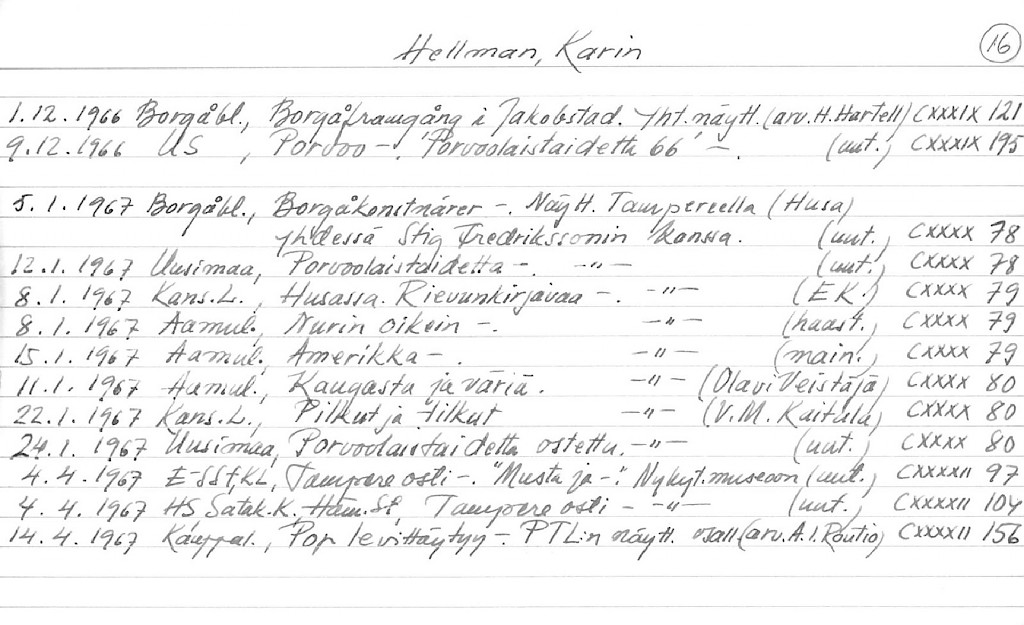 Hellman, Karin 16
1.12.1966 Borgåbl., Borgåframgång i Jakobstad. Yht. näytt. (arv. H. Hartell) CXXXIX 121
9.12.1966 US , Porvoo -. 'Porvoolaistaidetta 66' -. (uut.) CXXXIX 195
5.1.1967 Borgåbl., Borgåkonstnärer -. Näytt. Tampereella (Husa)
yhdessä Stig Fredrikssonin kanssa. (uut.) CXXXX 78
12.1.1967 Uusimaa, Porvoolaistaidetta -. -"- (uut.) CXXXX 78
8.1.1967 Kans.L., Husassa. Rievunkirjavaa -. -"- (EK.) CXXXX 79
8.1.1967 Aamul., Nurin oikein -. -"- (haast.) CXXXX 79
15.1.1967 Aamul., Amerikka -. -"- (main.) CXXXX 79
11.1.1967 Aamul., Kangasta ja väriä. -"- (Olavi Veistäjä) CXXXX 80
22.1.1967 Kans.L., Pilkut ja tilkut -"- (V.M. Kaitala) CXXXX 80
24.1.1967 Uusimaa, Porvoolaistaidetta ostettu. -"- (uut.) CXXXX 80
4.4.1967 E-SSt, KL, Tampere osti -. "Musta ja -". Nykyt. museoon (uut.) CXXXXII 97
4.4.1967 HS Satak.K. Häm.St, Tampere osti - -"- (uut.) CXXXXII 104
14.4.1967 Kauppal., Pop levittäytyy -. PTL:n näytt. osall (arv. A.I. Routio) CXXXXII 156